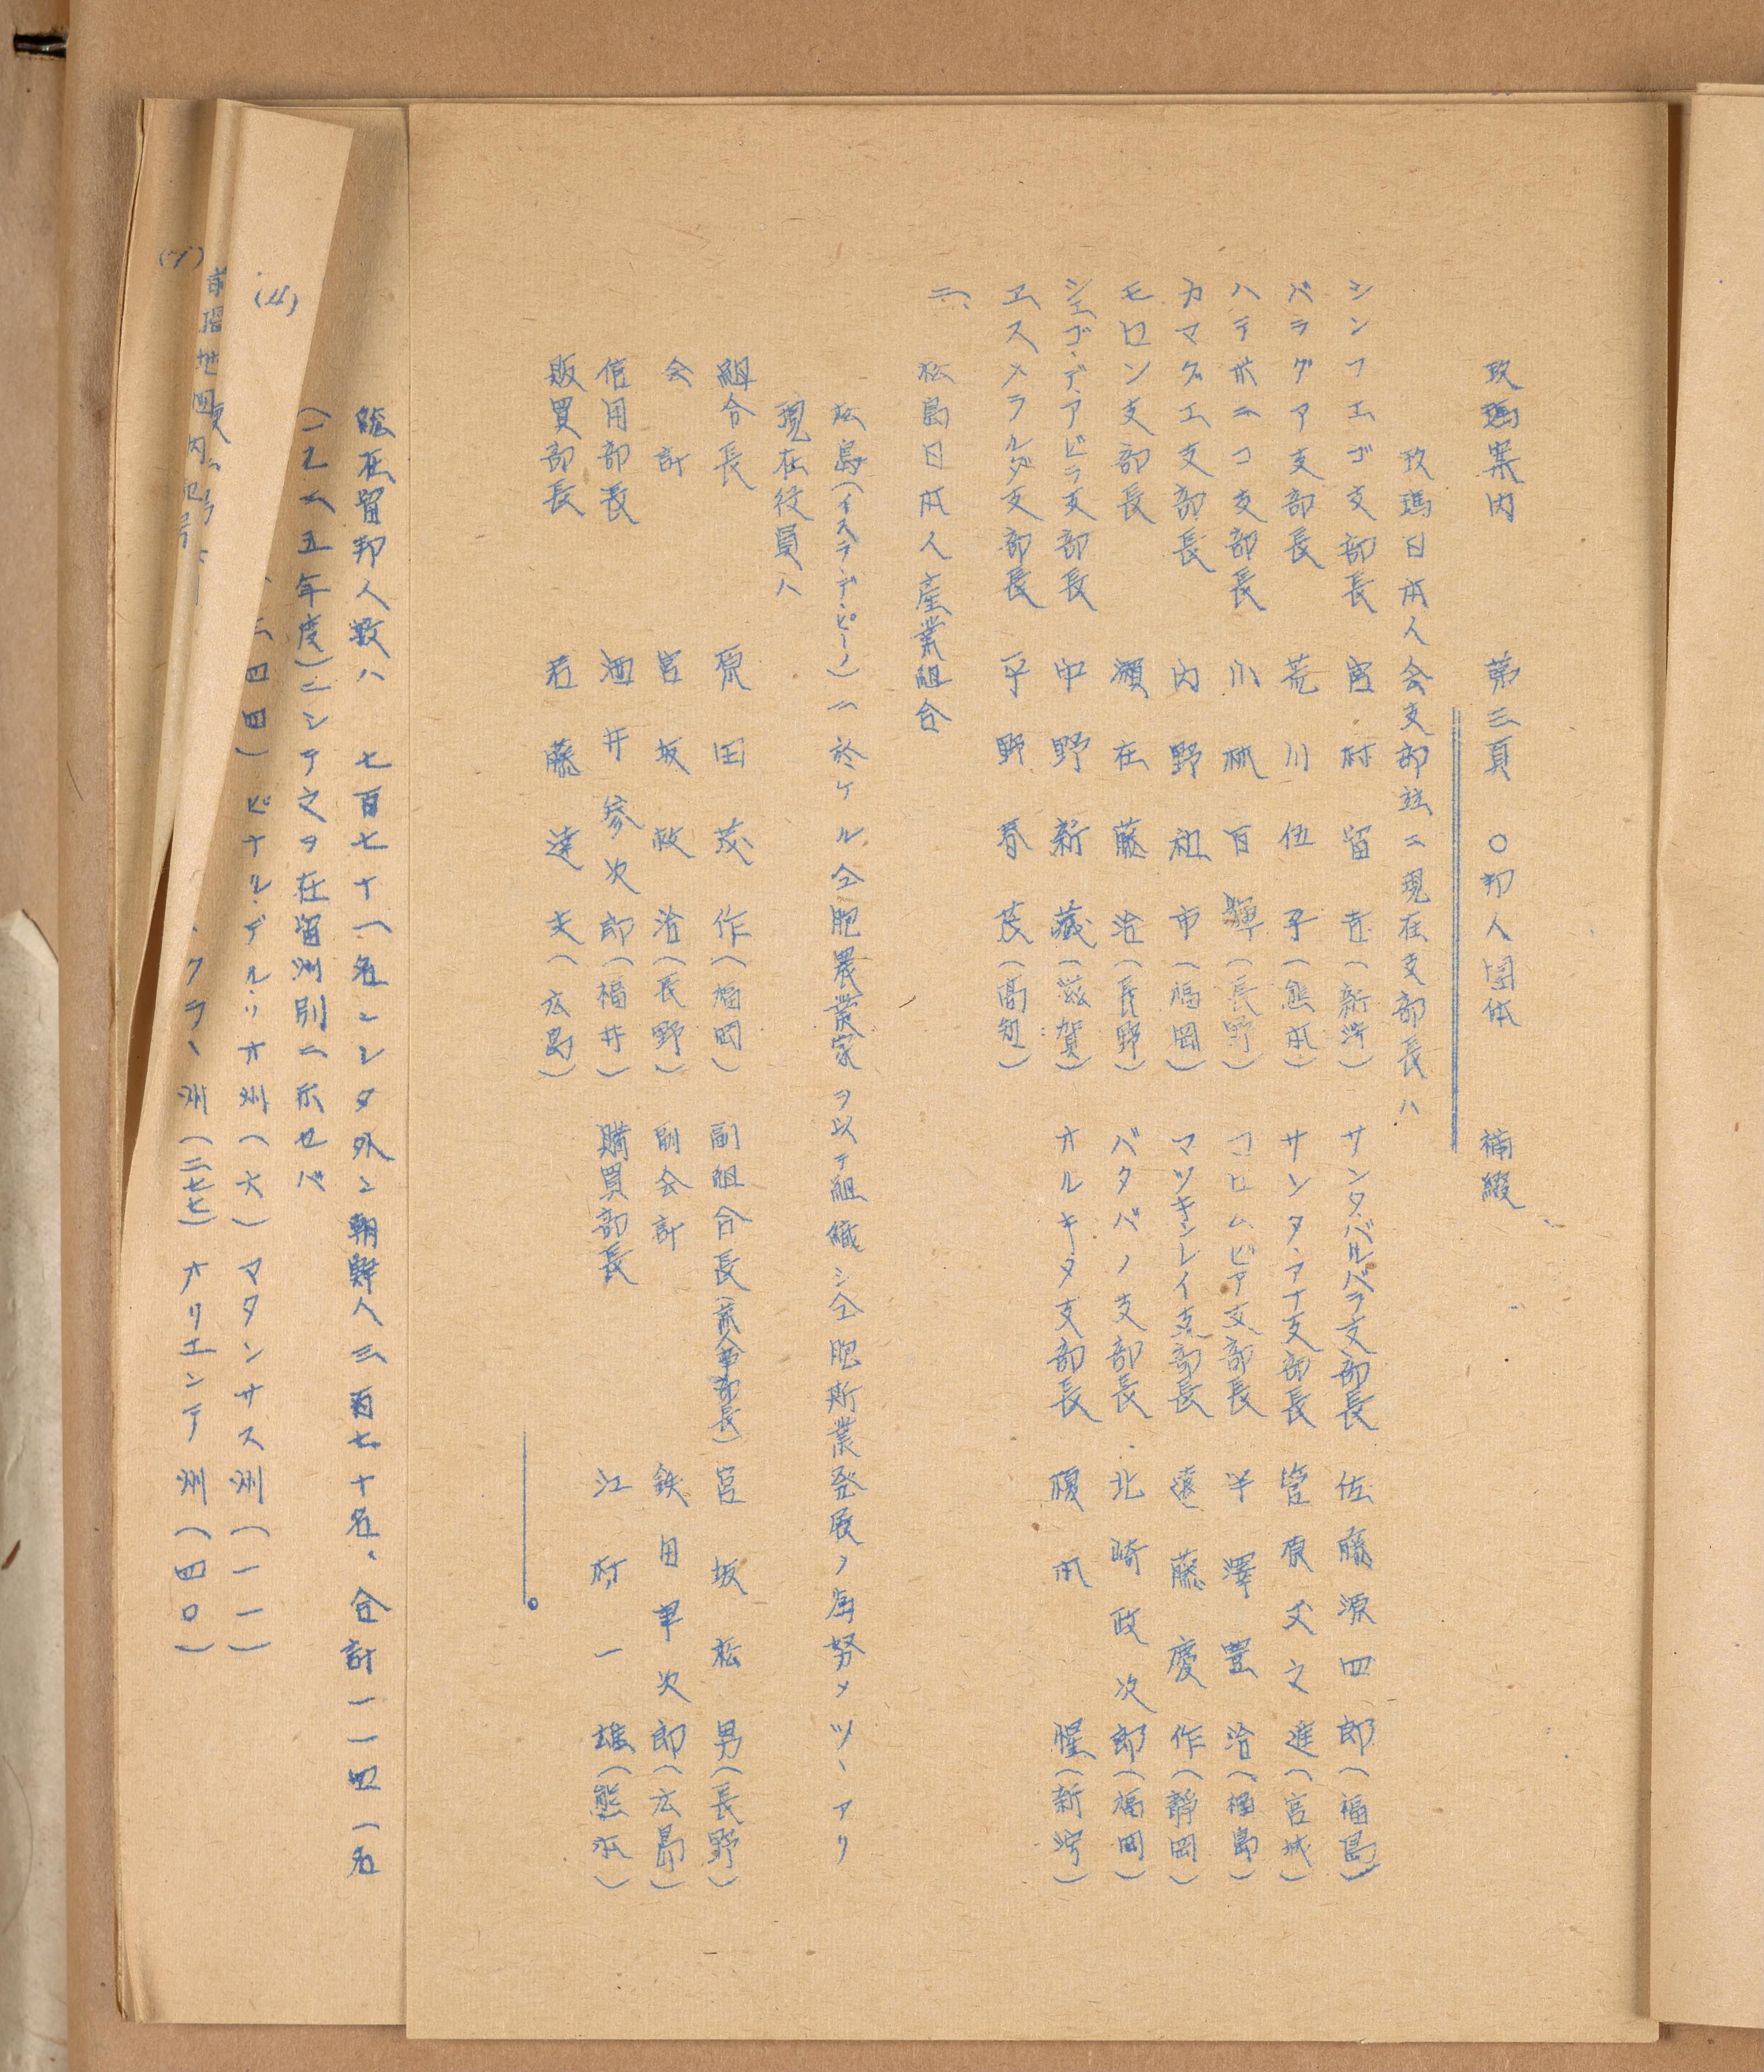 玖瑪案内 第三頁 〇邦人団体 補綴
玖瑪日本人会支部並ニ現在支部長ハ
シンフエゴ支部長 宮村留吉(新潟) サンタ・バルベラ支部長 佐藤源四郎(福島)
バラグア支部長 荒川伍子(熊本) サンタ・アナ支部長 菅原丈之進(宮城)
ハテボニコ支部長 小林百輝(長野) コロムビア支部長 半澤豊治(福島)
カマグエ支部長 内野祖市(福岡) マツキンレイ支部長 遠藤慶作(静岡)
モロン支部長 瀬在藤治(長野) バタバノ支部長 北崎政次郎(福岡)
シエゴ・デ・アビラ支部長 中野新藏(滋賀) オルキタ支部長 榎本惺(新潟)
エスメラルダ支部長 平野春茂(高知)
二、松島日本人産業組合
松島(イスラ・デ・ピーノ)ニ於ケル仝胞農業家ヲ以テ組織シ仝胞斯業発展ノ為努メツヽアリ
現在役員ハ
組合長 原田茂作(福岡) 副組合長(兼人事部長) 宮坂松男(長野)
会計 宮坂敕治(長野) 副会計 鉄田革次郎(広島)
信用部長 酒井參次郎(福井) 購買部長 江村一雄(熊本)
販買部長 若藤達夫(広島)
(4)
総在留邦人数ハ 七百七十一名ニシタ外ニ朝鮮人三百七十名、合計一一四一名
五年度)ニシテ之ヲ在留洲別ニ示セバ
四四) ピナル・デル・リオ州(六) マタンサス州(一一)
クララ州(二七七) オリエンテ州(四〇)